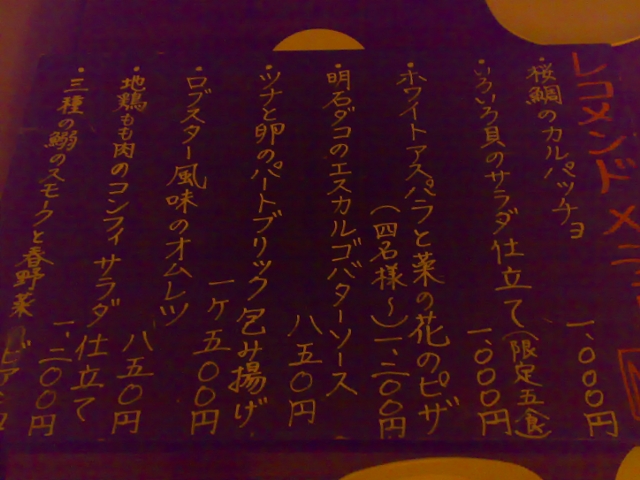 レコメンド メニ
・桜鯛のカルパッチョ
一、〇〇〇円
・いろいろ貝のサラダ仕立て(限定五食)
一、〇〇〇円
・ホワイトアスパラと菜の花のピザ
(四名様〜)一、二〇〇円
・明石ダコのエスカルゴバターソース
八五〇円
・ツナと卵のパートブリック包み揚げ
一ケ五〇〇円
・ロブスター風味のオムレツ
八五〇円
・地鶏もも肉のコンフィサラダ仕立て
一、二〇〇円
・三種の鰯のスモークと春野菜